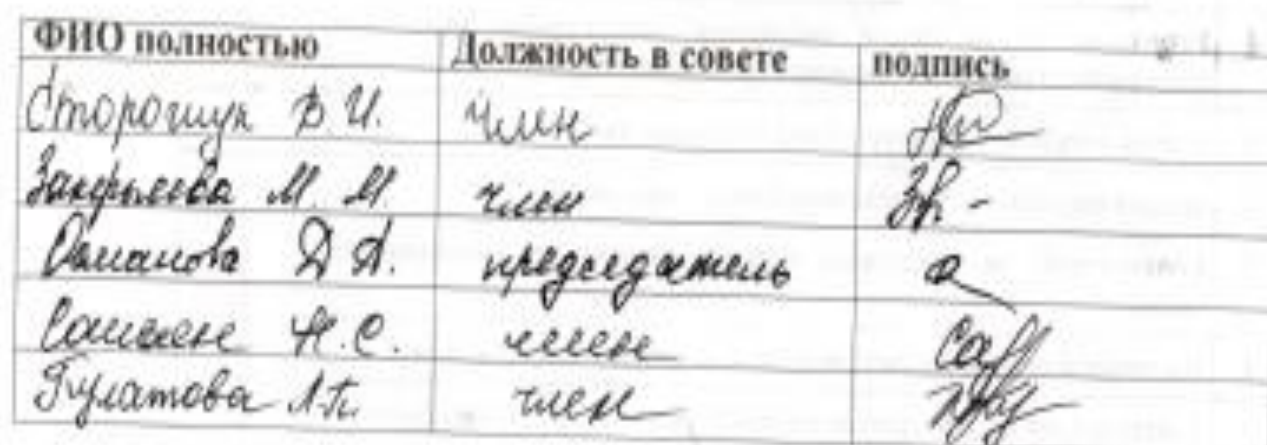 ФИО полностью Должность в совете подпись
Сторощук В. И. член
М. М. член
Османова Д А. председатель
Н. С. член
Булатова Л. П. член